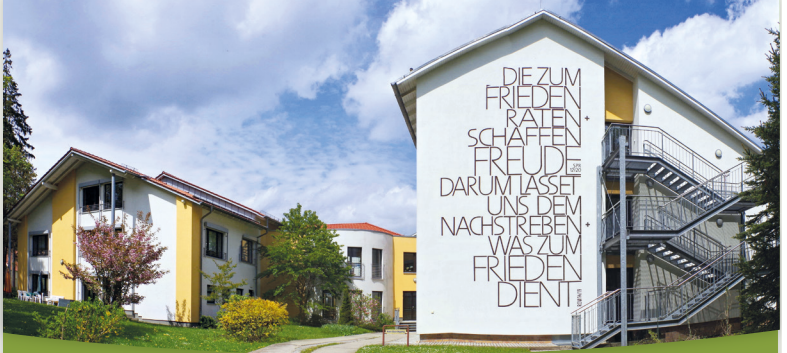 DIE ZUM
FRIEDEN
RATEN +
SCHAFFEN
FREUDE
DARUM LASSET
UNS DEM
NACHSTREBEN +
WAS ZUM
FRIEDEN
DIENT